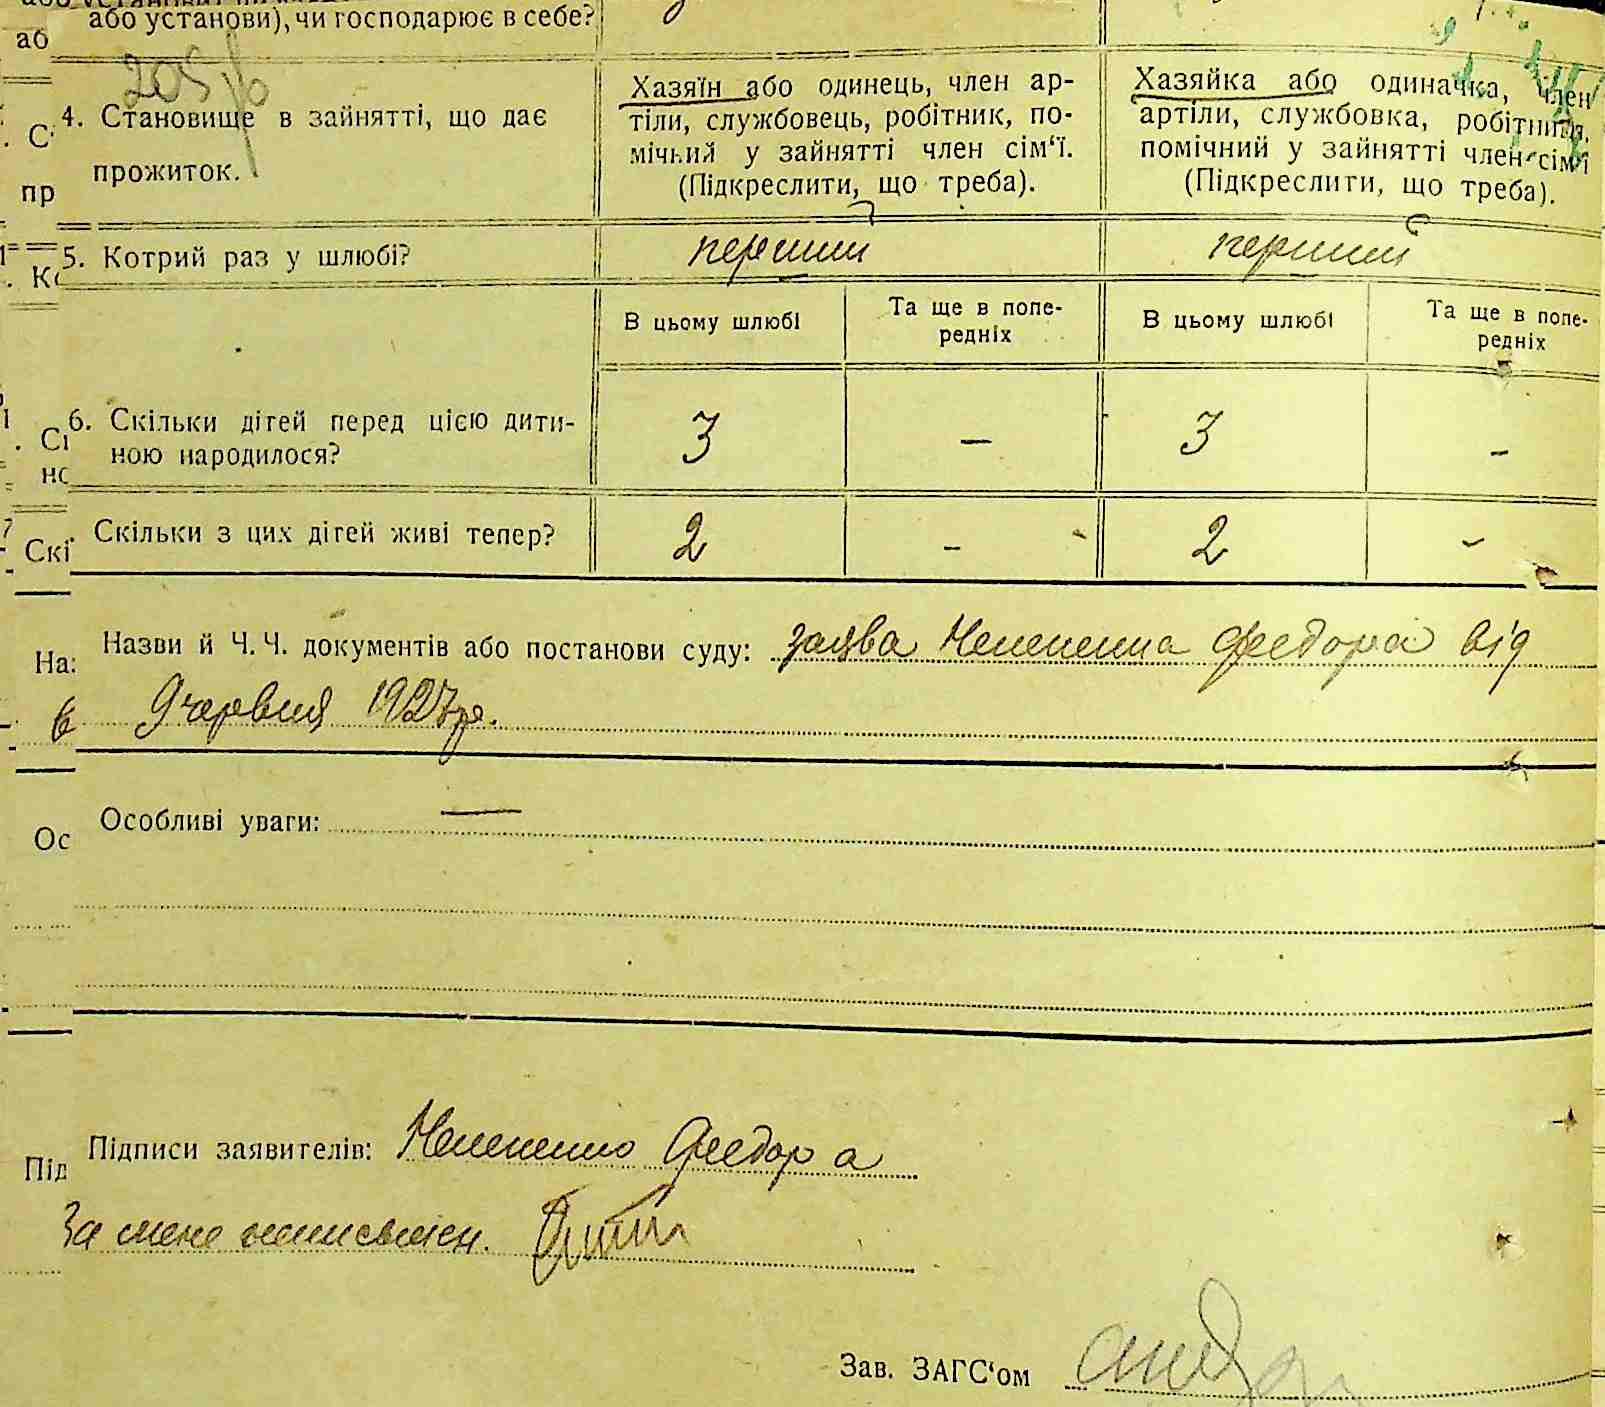 або установи), чи господарює в себе?
аб
205
4. Становище в зайнятті, що дає
прожиток.
Хазяїн або одинець, член ар-
тіли, службовець, робітник, по-
мічний у зайнятті член сім‘ї.
(Підкреслити, що треба).
Хазяйка або одиначка, член
артіли, службовка, робітниця,
помічний у зайнятті член сім‘ї
(Підкреслити, що треба).
пр
5. Котрий раз у шлюбі?
перший
перший
В цьому шлюбі
Та ще в попе-
редніх
В цьому шлюбі
Та ще в попе-
редніх
6. Скільки дітей перед цією дити-
ною народилося?
3
–
3
–
Скільки з цих дітей живі тепер?
2
–
2
–
Скі
Назви й Ч. Ч. документів або постанови суду: заява Федора від
9 червня 1927 р.
На
Особливі уваги: —
Ос
Підписи заявителів: Федора
Під
За мене
Зав. ЗАГС‘ом